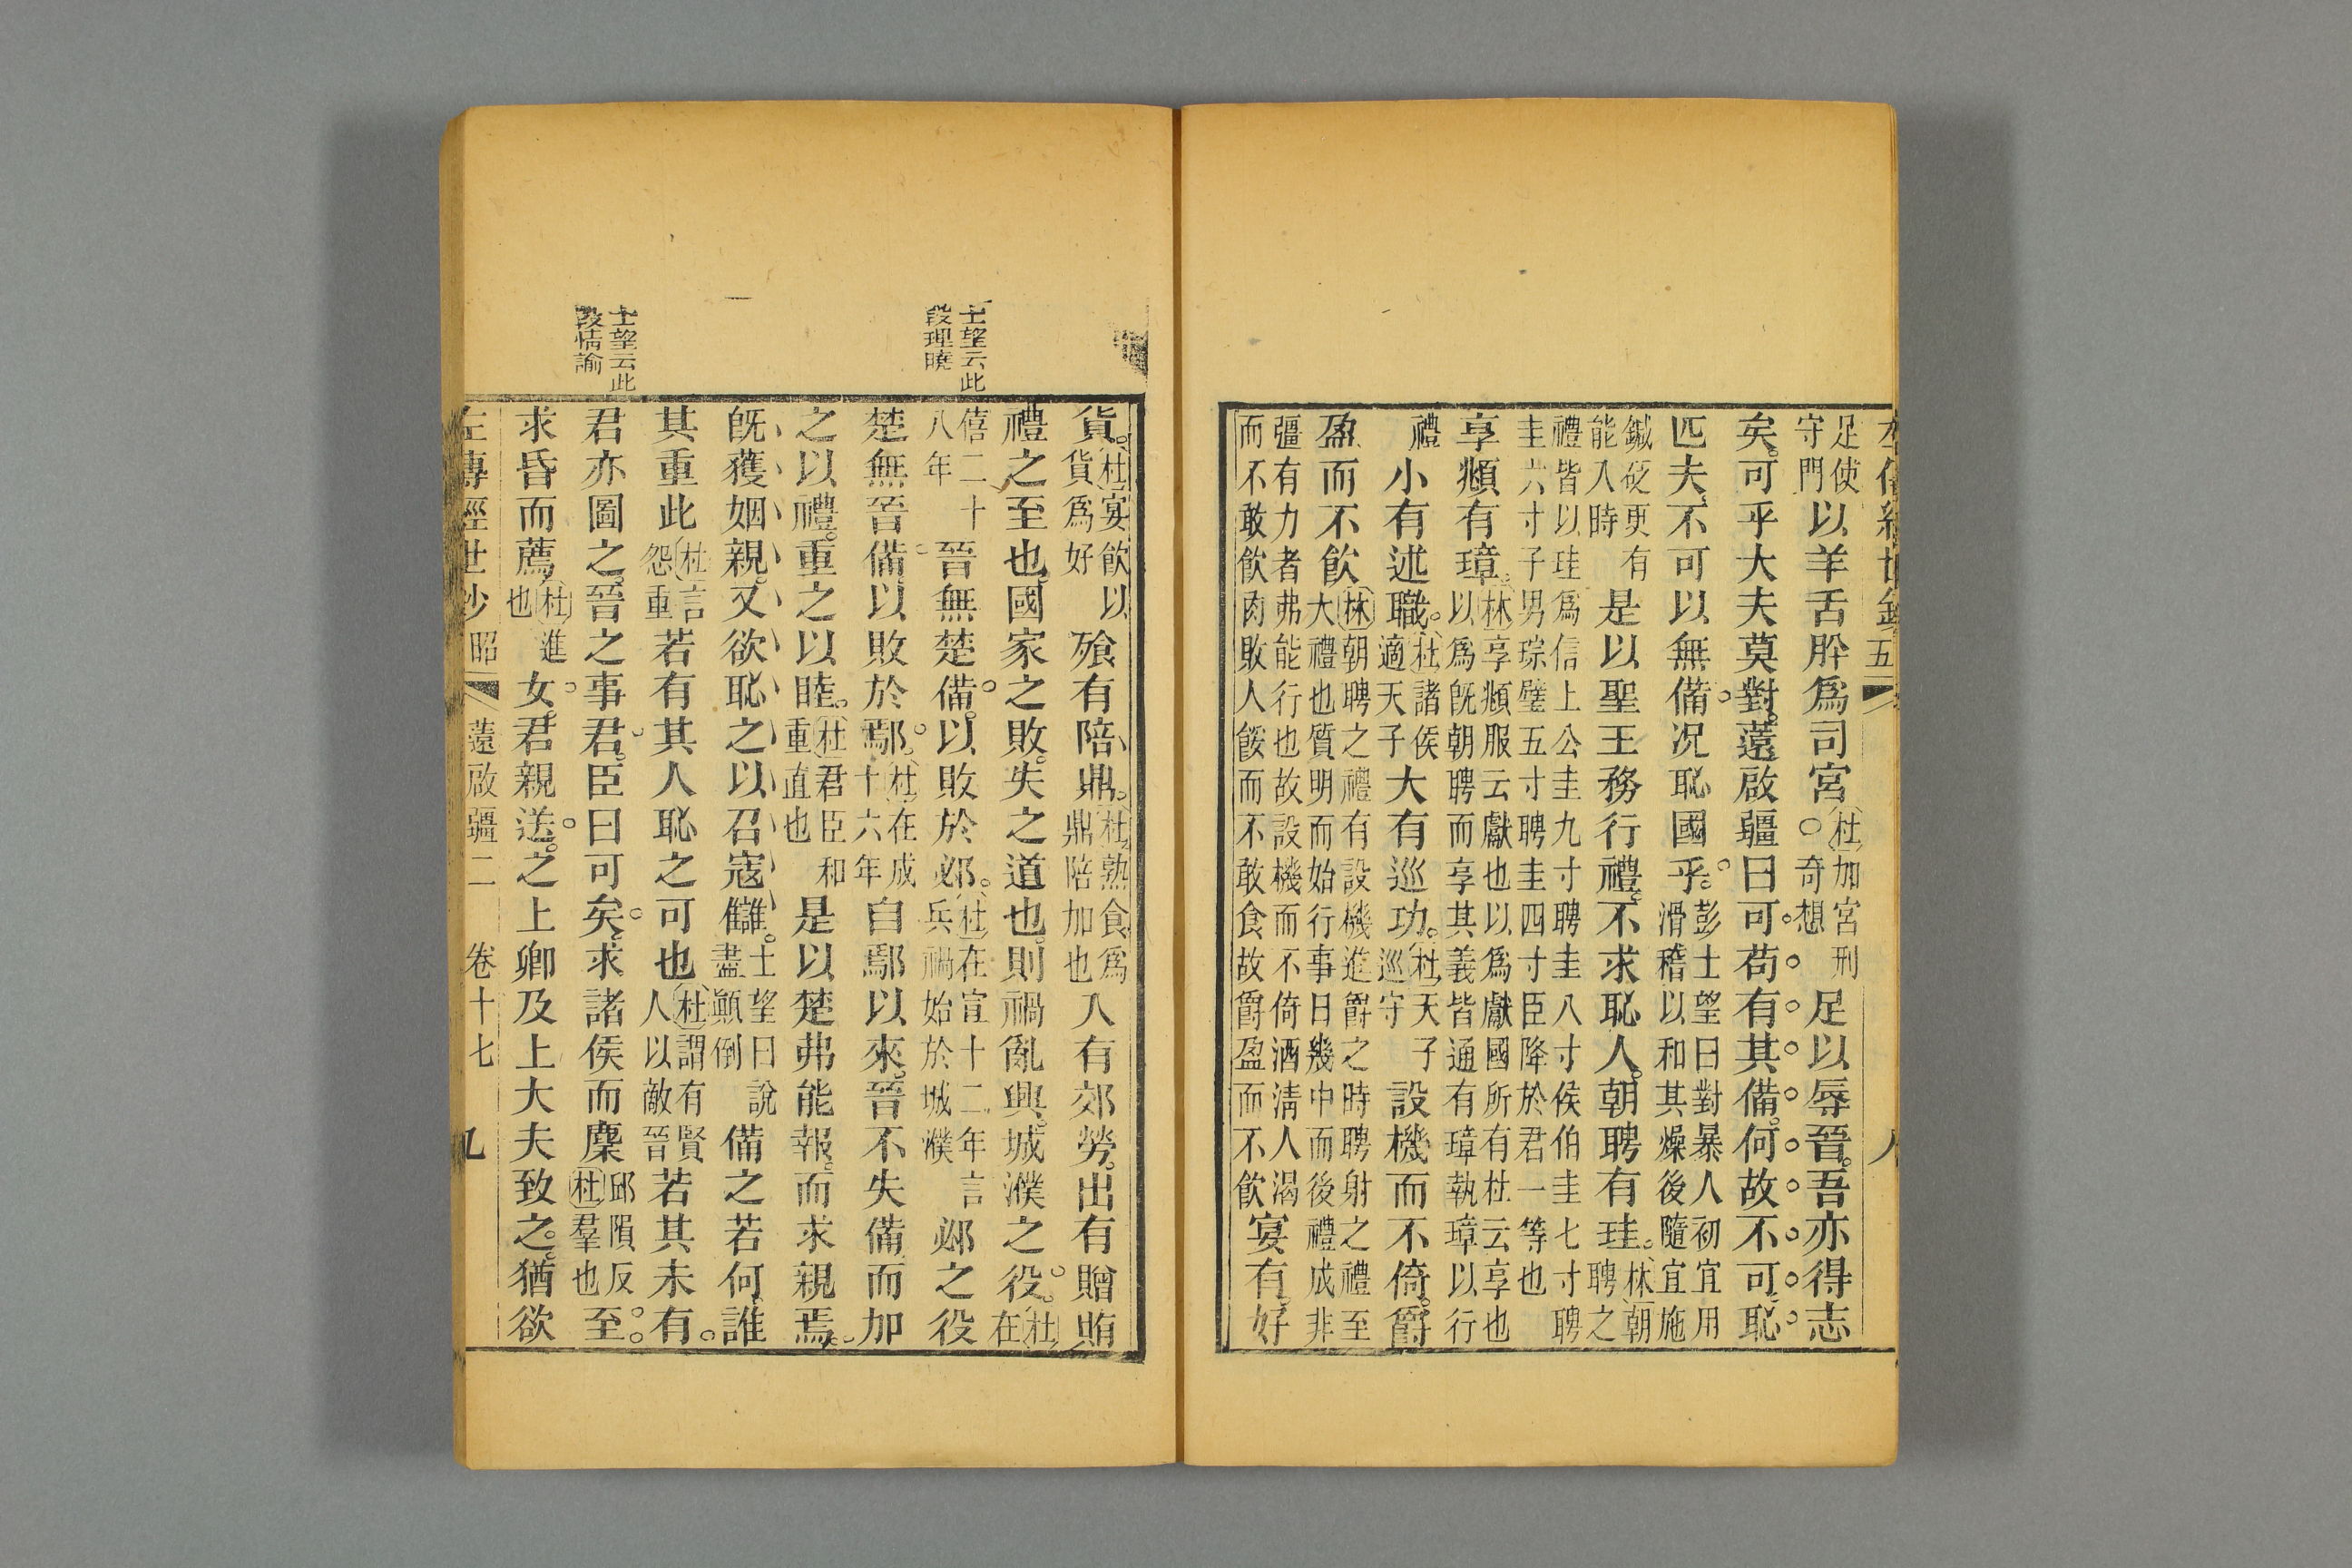 左傳經世鈔 五 八
足使守門以羊舌肸爲司宮杜加宮刑○奇想足以辱晉。吾亦得志
矣。可乎大夫莫對。薳啟疆曰可。苟有其備。何故不可。恥
匹夫不可以無備。况恥國乎。彭士望曰對暴人初宜用滑稽以和其燥後隨宜施
鍼砭更有能入時是以聖王務行禮。不求恥人。朝聘有珪。林朝聘之
禮皆以珪爲信上公圭九寸聘圭八寸侯伯圭七寸聘圭六寸子男琮璧五寸聘圭四寸臣降於君一等也
享頫有璋。林享頫服云獻也以爲獻國所有杜云享也以爲旣朝聘而享其義皆通有璋執璋以行
禮小有述職。杜諸侯適天子大有巡功。杜天子巡守設機而不倚。爵
盈而不飲林朝聘之禮有設機進爵之時聘射之禮至大禮也質明而始行事日幾中而後禮成非
疆有力者弗能行也故設機而不倚酒淸人渴而不敢飲肉敗人餒而不敢食故爵盈而不飲宴有好
貨。杜宴飲以貨爲好飱有陪鼎。杜熟食爲鼎陪加也入有郊勞。出有贈賄
禮之至也。國家之敗。失之道也。則禍亂興。城濮之役。杜在
僖二十八年晉無楚備。以敗於邲。杜在宣十二年言兵禍始於城濮邲之役
楚無晉備。以敗於鄢。杜在成十六年自鄢以來。晉不失備而加
之以禮。重之以睦。杜君臣和重直也是以楚弗能報。而求親焉。
旣獲姻親。又欲恥之以召寇讎。士望曰說盡顚倒備之若何。誰
其重此杜言怨重若有其人恥之可也杜謂有賢人以敵晉若其未有。
君亦圖之。晉之事君。臣曰可矣。求諸侯而麇邱隕反杜羣也至。
求昏而薦杜進也女。君親送。之上卿及上大夫致之。猶欲
左傳經世鈔 昭 薳啟疆二 卷十七 九
士望云此段理曉
士望云此段情諭